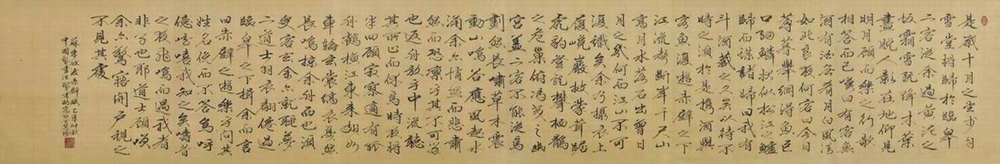 是歲十月之望步自
雪堂將歸於臨皋
二客從余過黃泥之
坂霜露既降木葉
盡脫人影在地仰見
明月顧而樂之行歌
相答已而嘆曰有客無
酒有酒無肴月白風清
如此良夜何客曰今者
薄暮舉網得魚巨
口細鱗狀似松江之鱸
顧安所得酒乎
歸而謀諸婦婦曰我有
斗酒藏之久矣以待子
不時之須於是攜酒與
魚復遊於赤壁之下
江流有聲斷岸千尺山
高月小水落石出曾日
月之幾何而江山不可
復識矣余乃攝衣而上
履巉巖披蒙茸踞
虎豹登虯龍攀棲鶻
之危巢俯馮夷之幽
宮蓋二客不能從焉
劃然長嘯草木震
動山鳴谷應風起水
涌余亦悄然而悲肅
然而恐凜乎其不可留
也反而登舟放乎中流聽
其所止而休焉時夜將
半四顧寂寥適有孤
鶴橫江東來翅如
車輪玄裳縞衣戛然
長鳴掠余舟而西也須
臾客去余亦就睡夢
一道士羽衣蹁躚過
臨皋之下揖余而言
曰赤壁之遊樂乎問其
姓名俛而不答嗚呼
噫嘻我知之矣疇昔
之夜飛鳴而過我者
非子也耶道士顧笑
余亦驚寤開戶視之
不見其處
蘇東坡後赤壁賦
中國書法